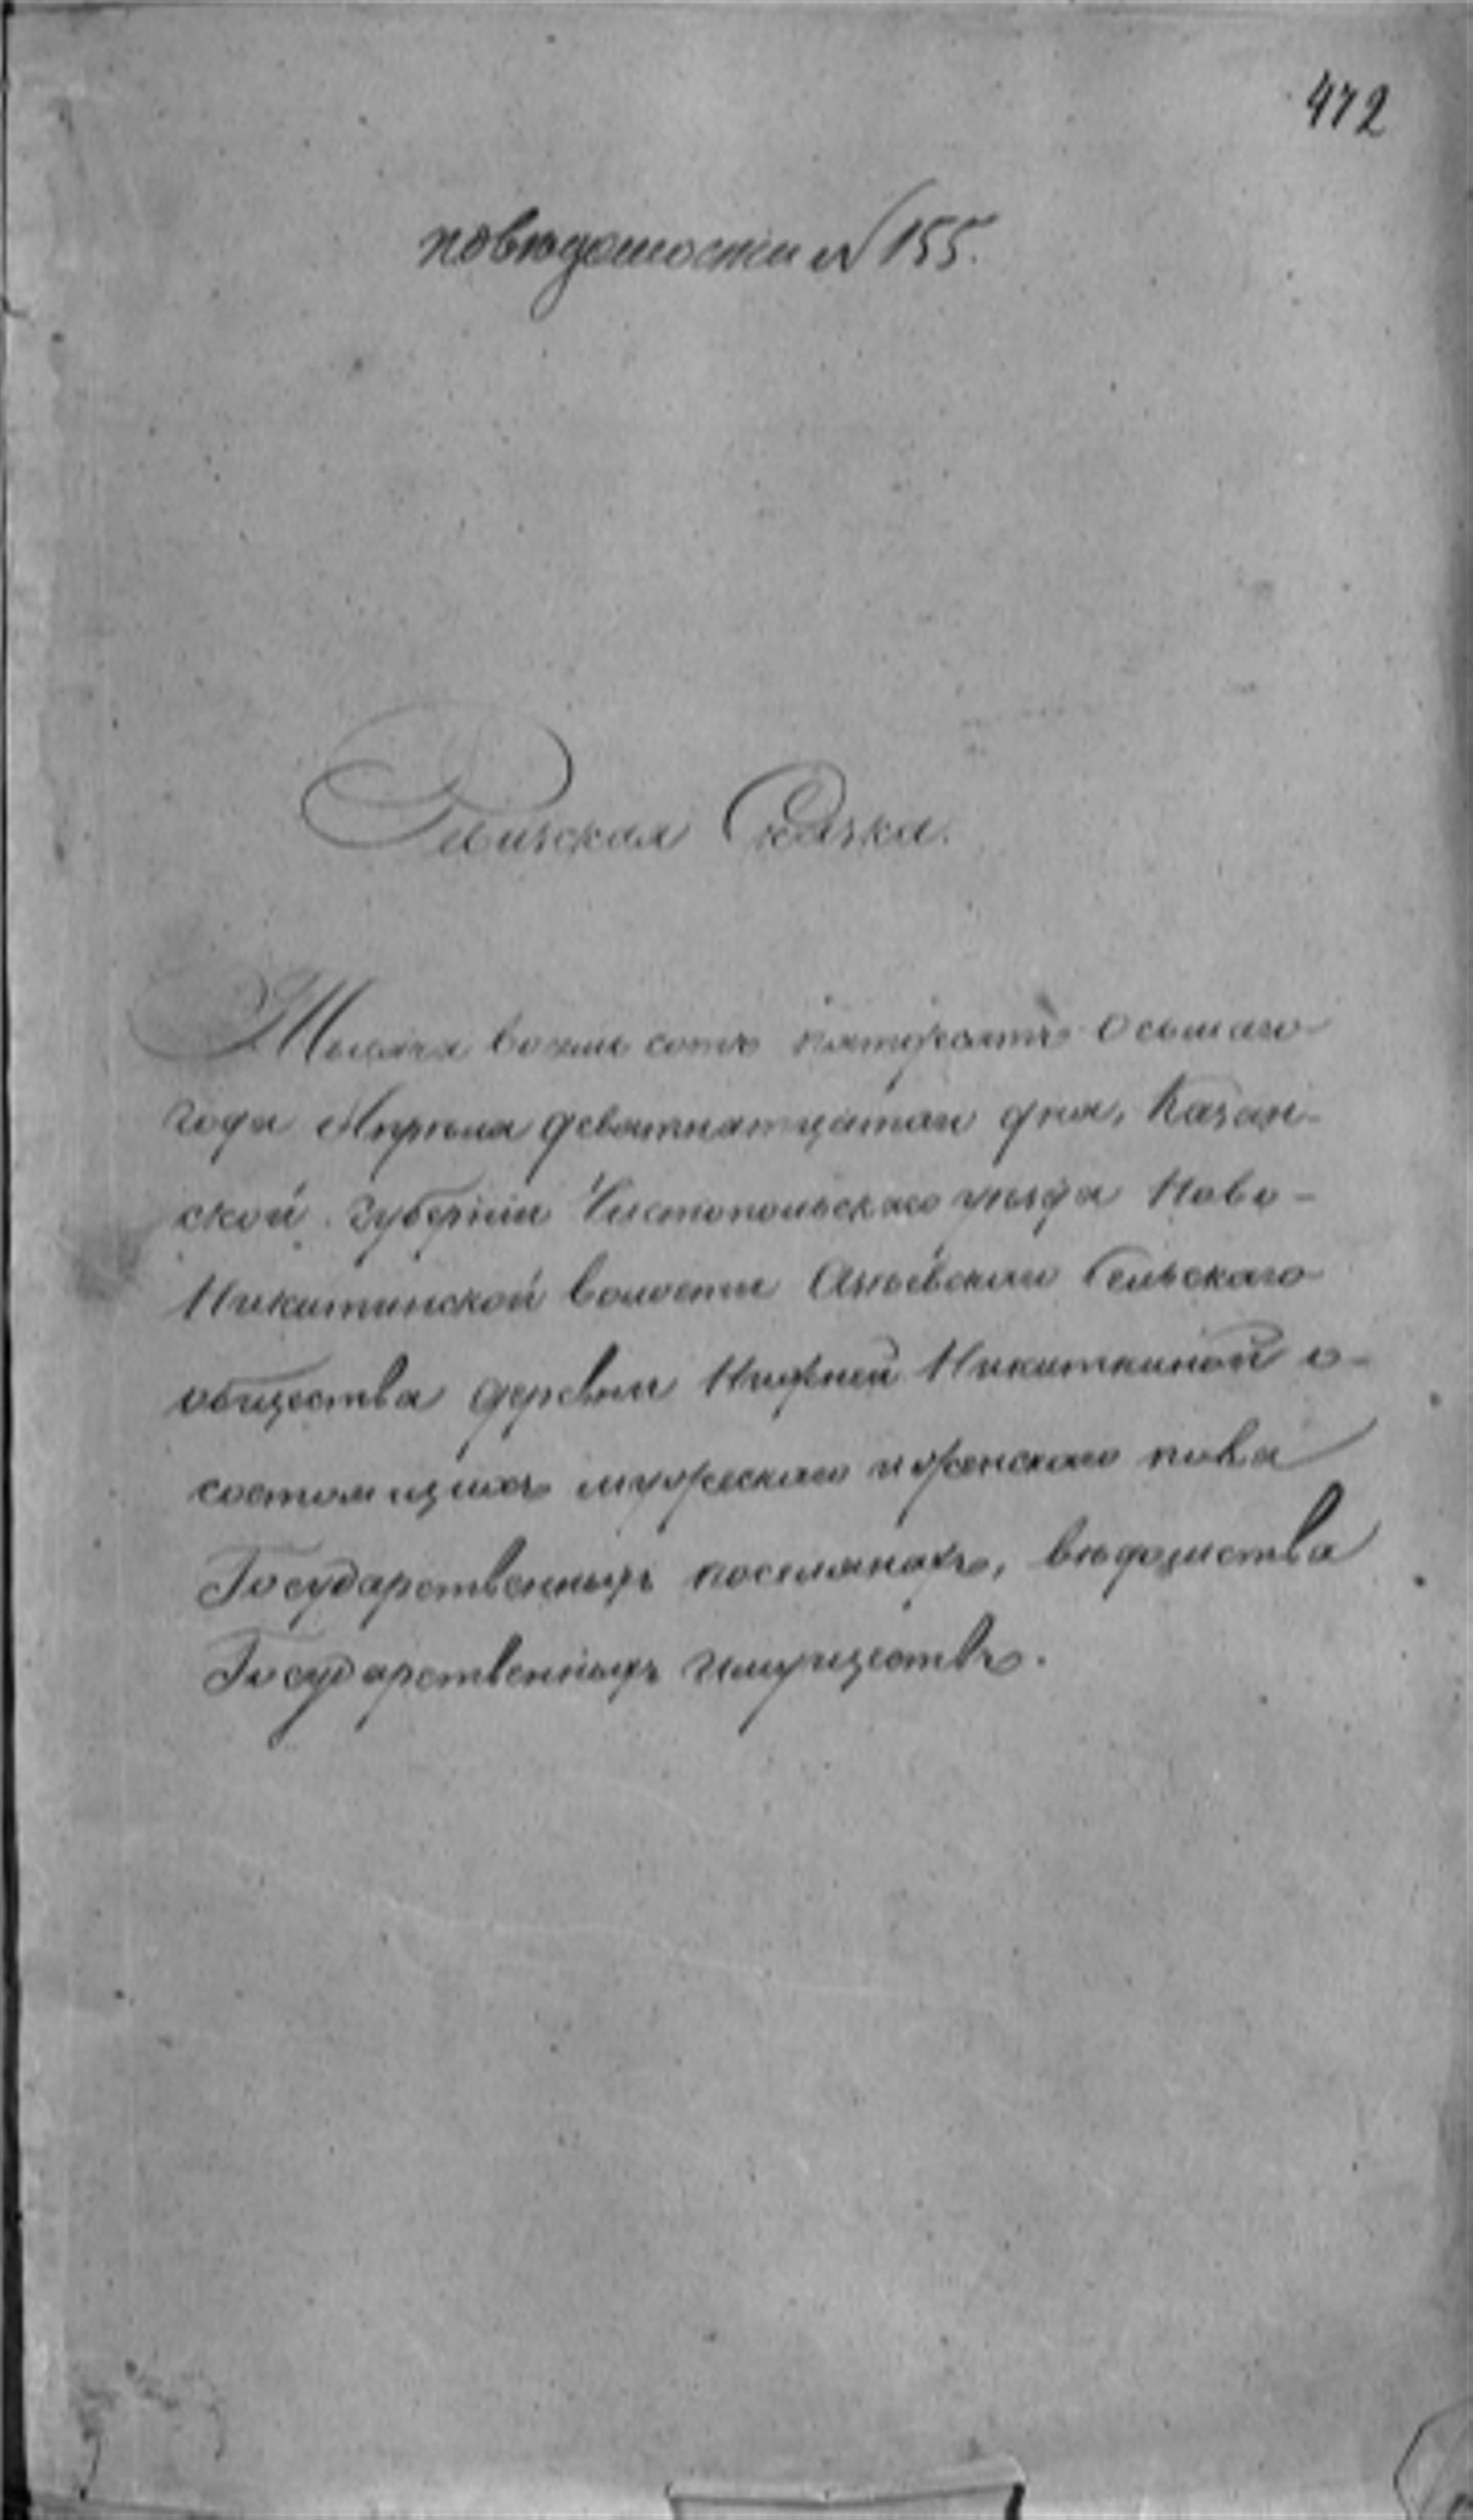 472
по вѣдомости № 155.
Ревизская Сказка.
Тысяча восемь сотъ пятьдесятъ осьмаго
года Апрѣля девятнатцатаго дня, Казан-
ской Губерніи Чистопольскаго уѣзда Ново-
Никитинской волости Сельскаго
общества деревни Нижней Никиткиной о
состоящихъ мужескаго и женскаго пола
Государственныхъ поселянахъ, вѣдомства
Государственныхъ имуществъ.